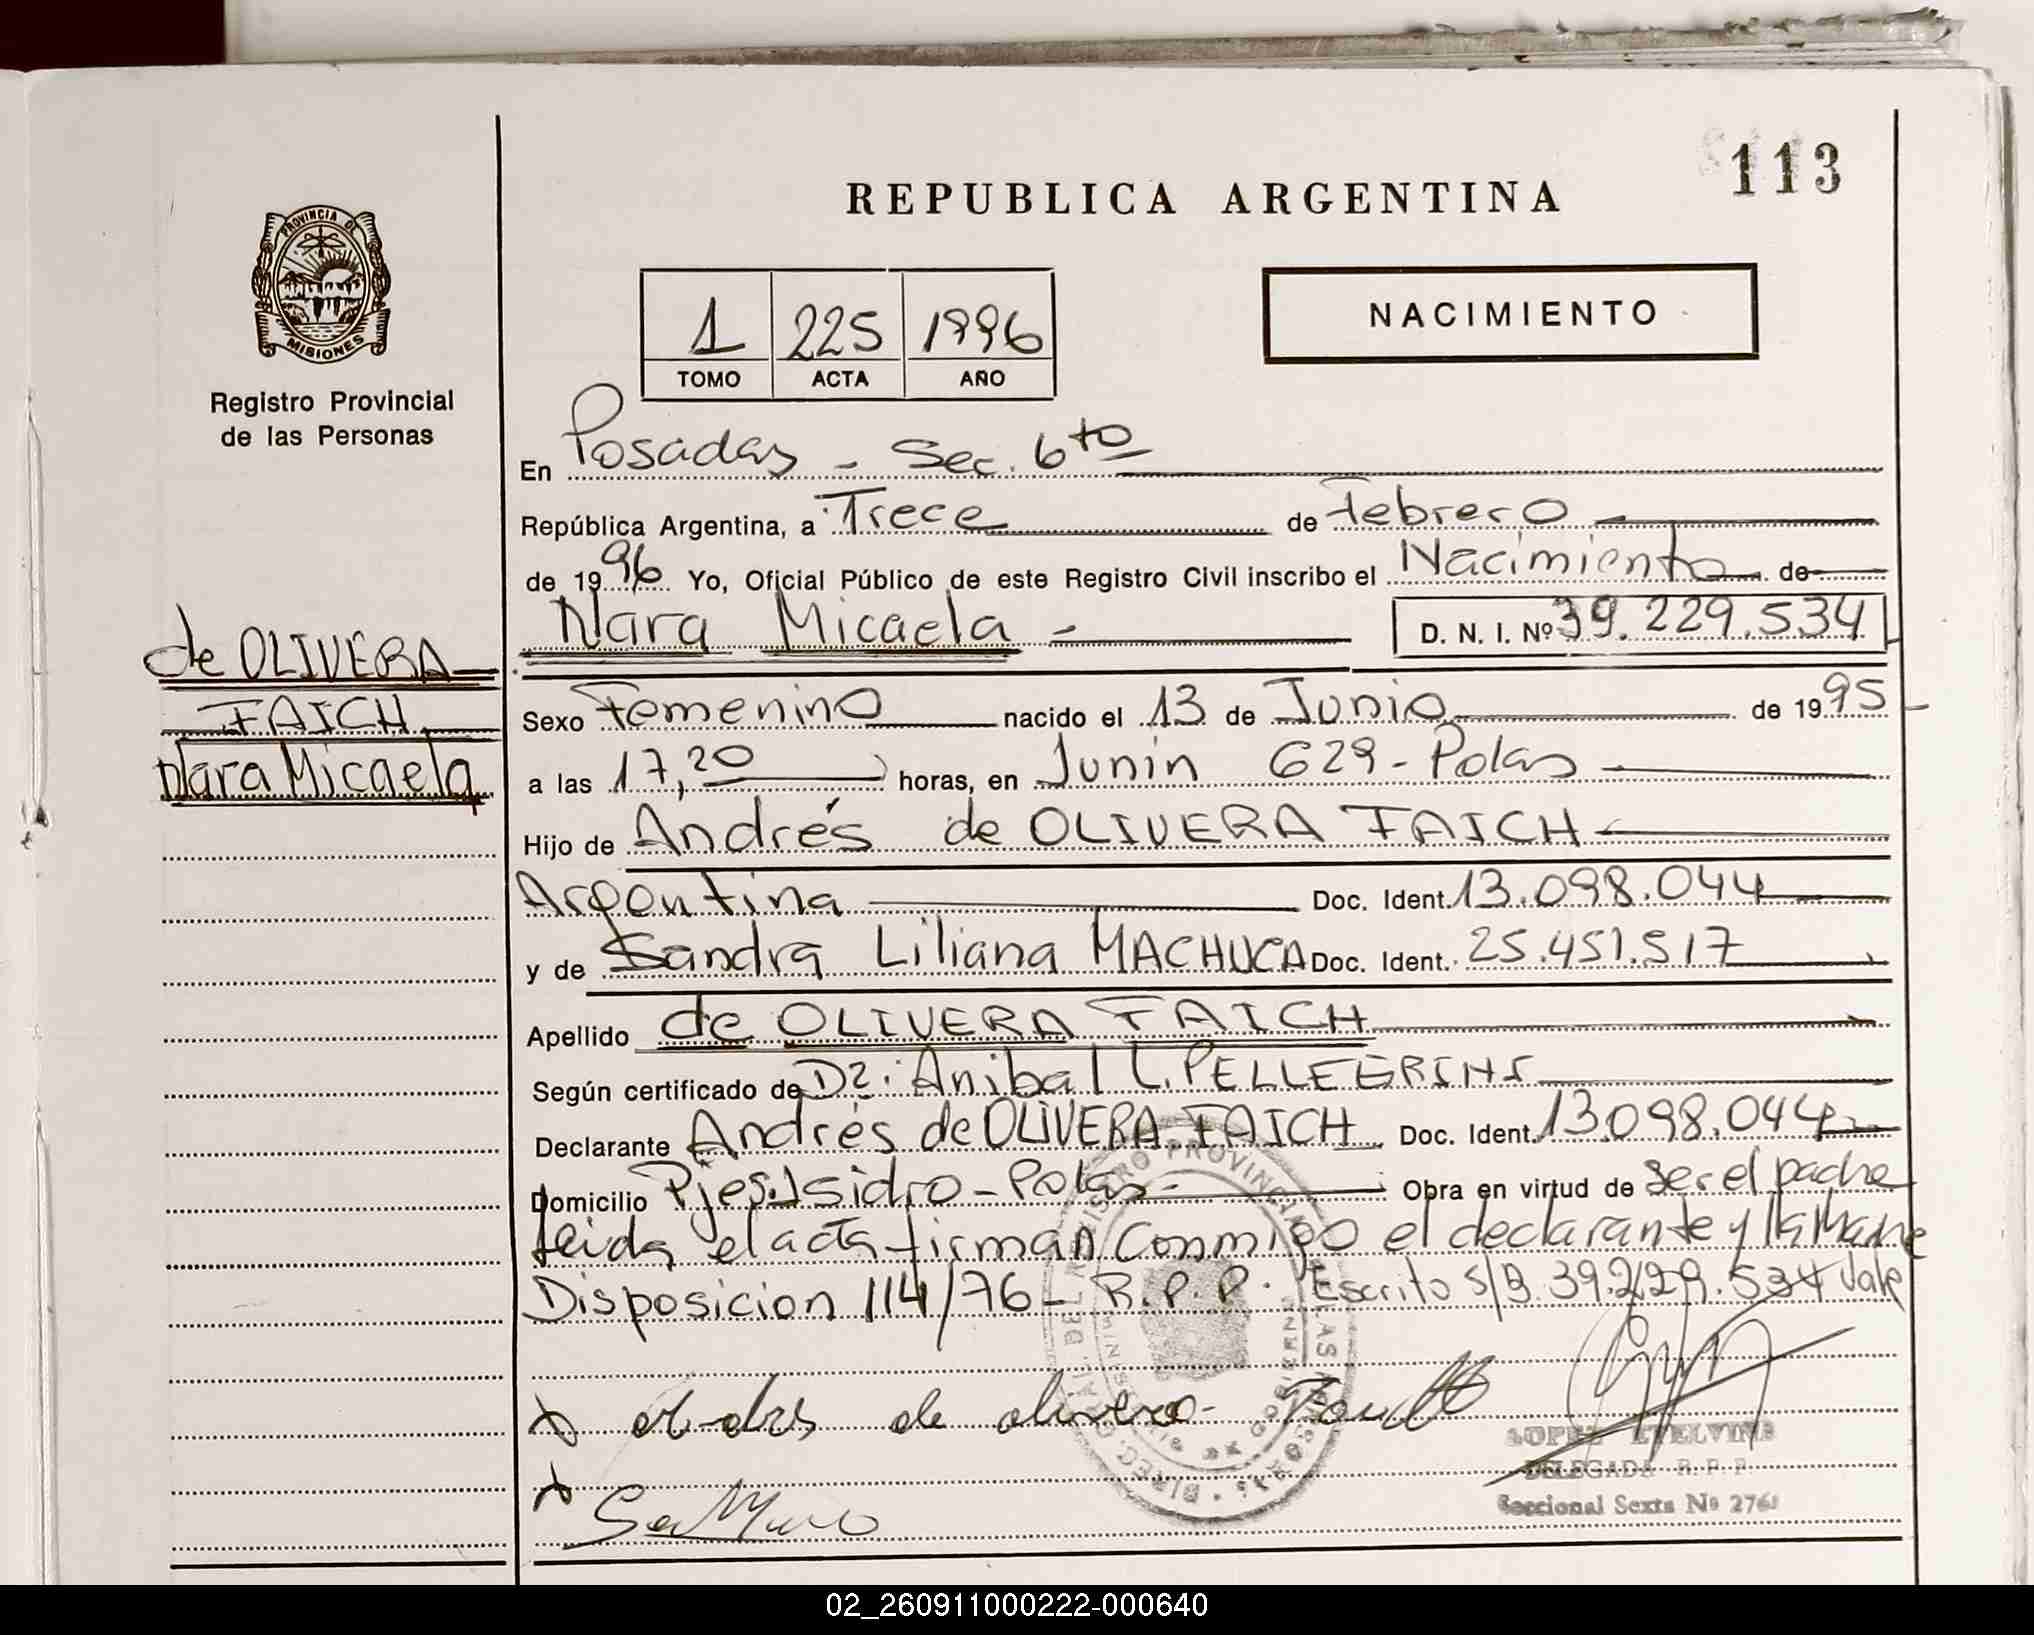 113
REPUBLICA ARGENTINA
PROVINCIA DE
MISIONES
Registro Provincial
de las Personas
NACIMIENTO
1 225 1996
TOMO ACTA AÑO
En Posadas - Sec. 6to
República Argentina, a Trece de Febrero
de 1996 Yo, Oficial Público de este Registro Civil inscribo el Nacimiento de
Nara Micaela - D. N. I. Nº 39.229.534
de OLIVERA
FAICH
Nara Micaela
Sexo Femenino nacido el 13 de Junio de 1995
a las 17,20 horas, en Junín 629 - Pdas
Hijo de Andrés de OLIVERA FAICH
Argentina Doc. Ident. 13.098.044
y de Sandra Liliana MACHUCA Doc. Ident. 25.451.517
Apellido de OLIVERA FAICH
Según certificado de Dr. Anibal L. PELLEGRINI
Declarante Andrés de OLIVERA FAICH Doc. Ident. 13.098.044
Domicilio Pje S. Isidro - Pdas - Obra en virtud de ser el padre
Leida el acta firman conmigo el declarante y la Madre
Disposicion 114/76 - R.P.P. Escrito S/B. 39.229.534 Vale
de olivera
LOPEZ ETELVINA
DELEGADA R.P.P.
Seccional Sexta Nº 276
02_260911000222-000640